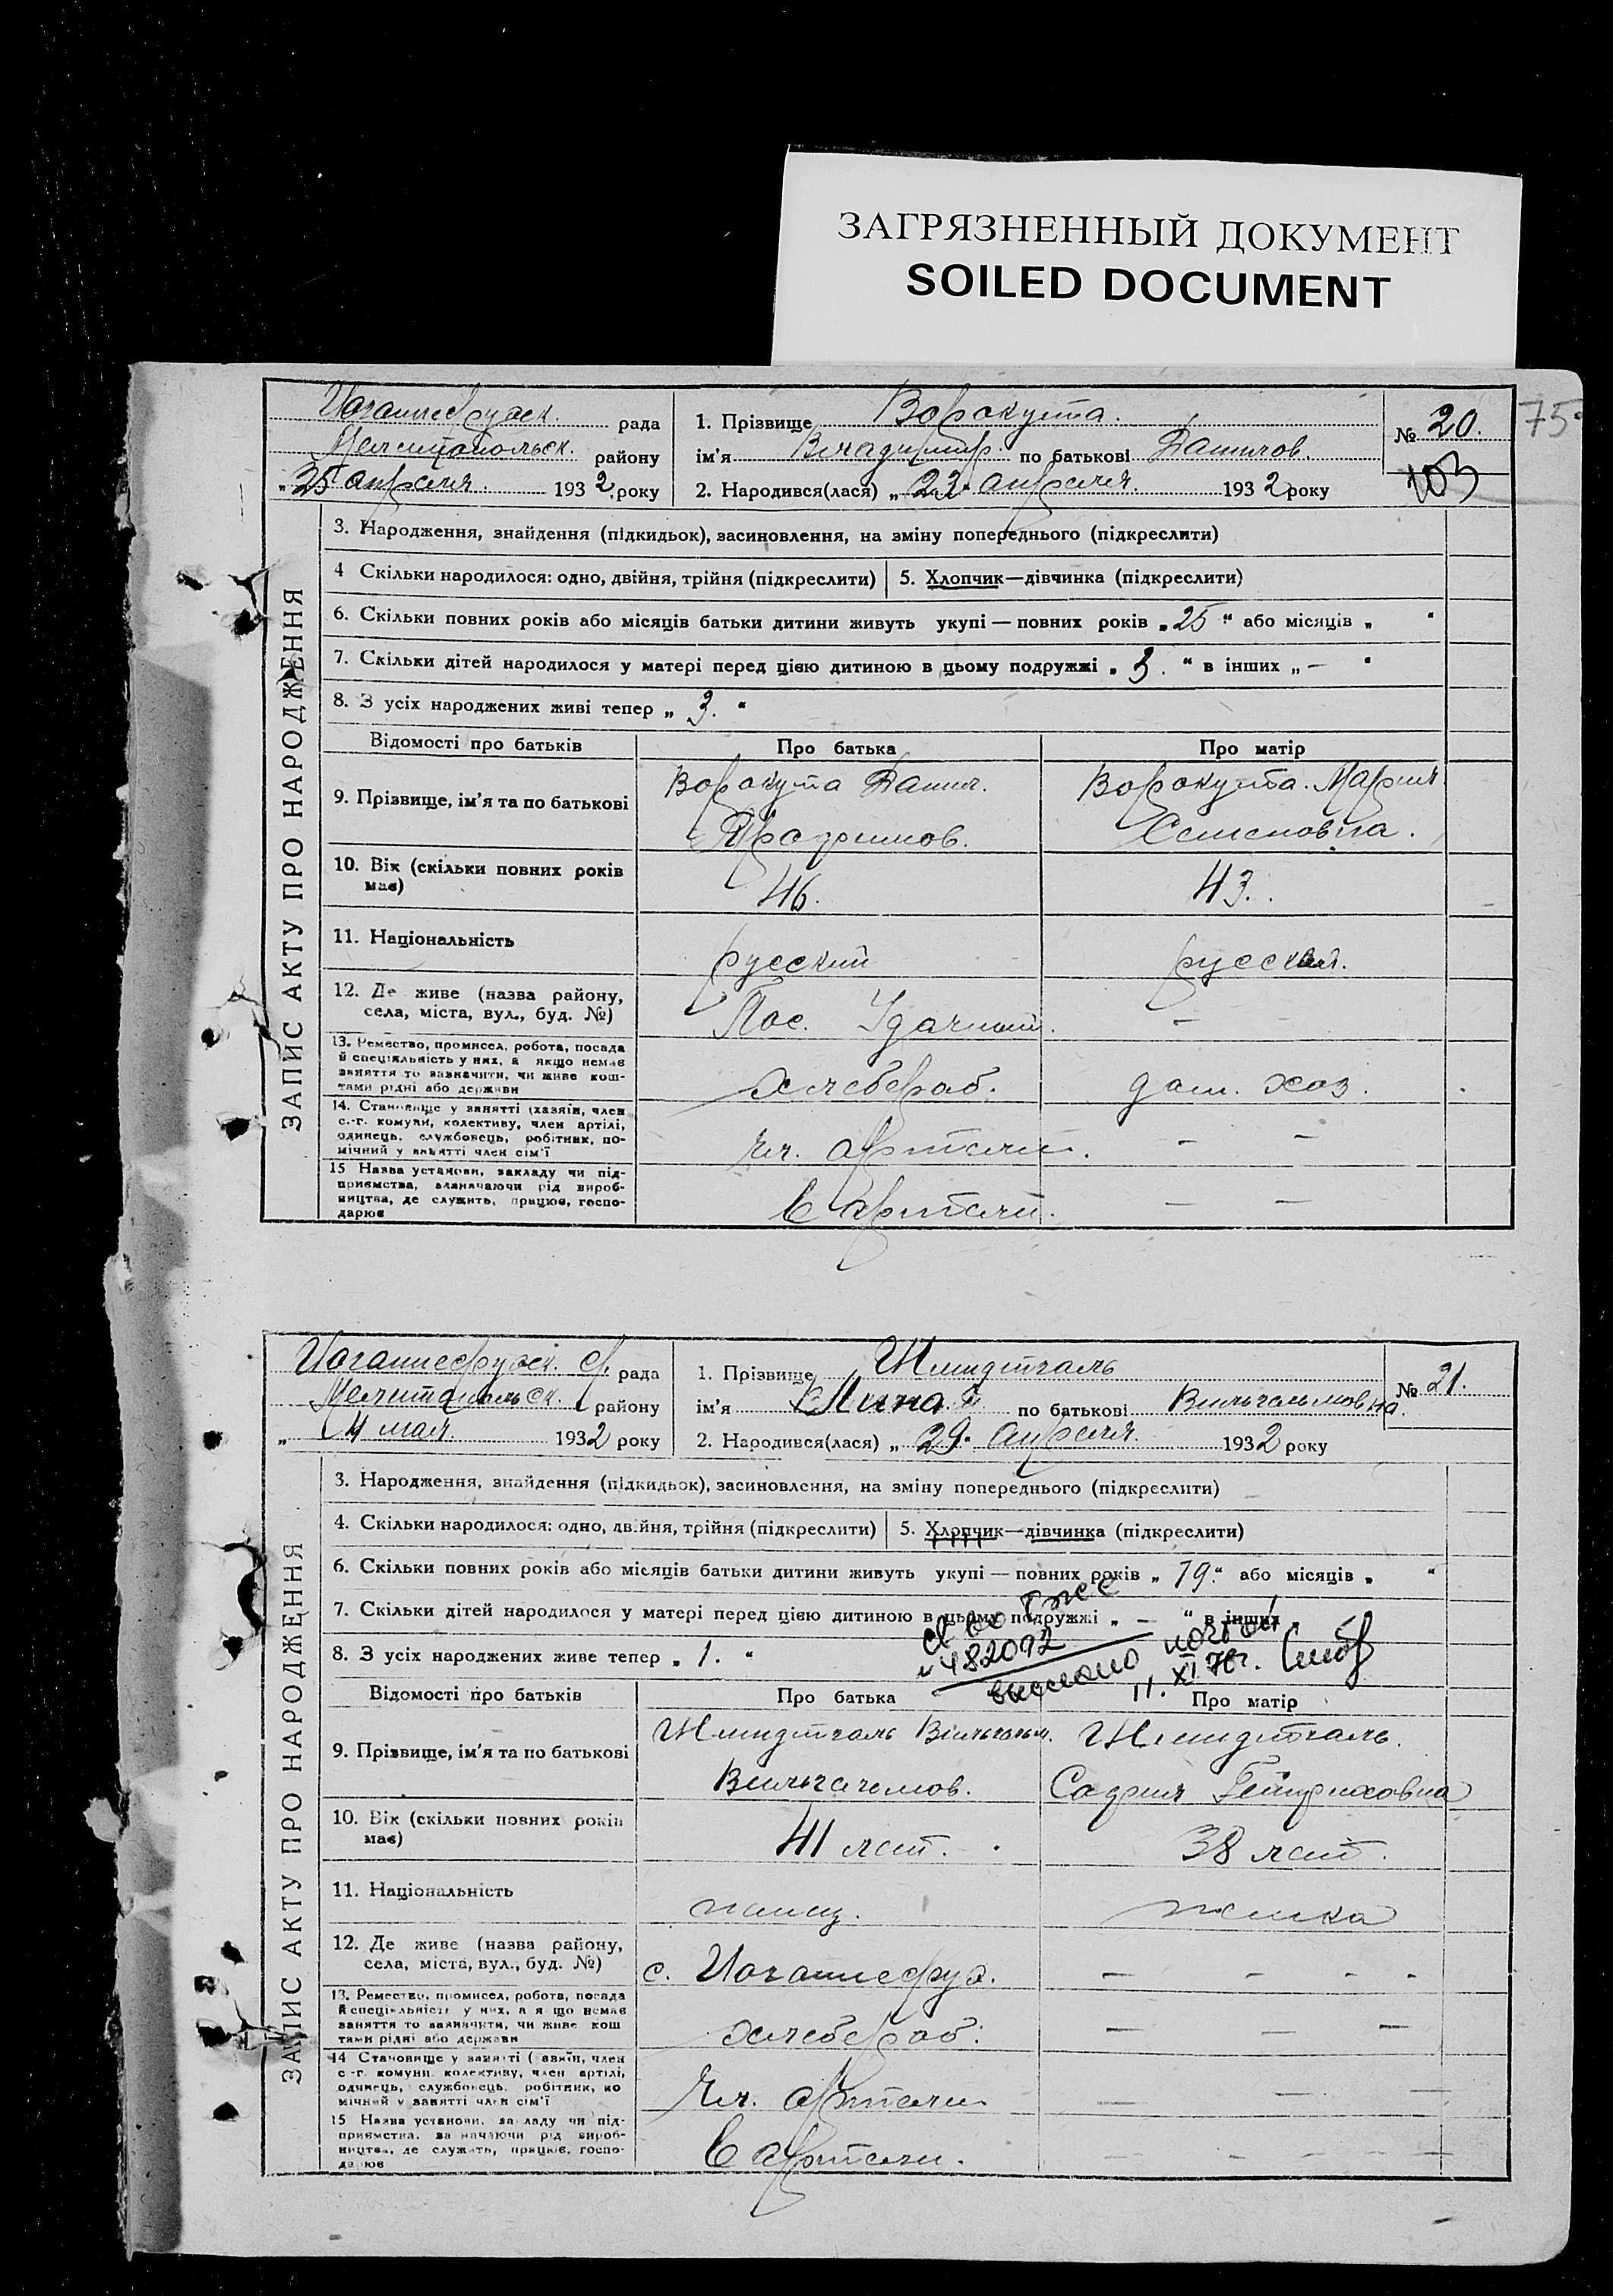 ЗАГРЯЗНЕННЫЙ ДОКУМЕНТ
SOILED DOCUMENT
75
Иоганнесруэск. рада
Мелитопольск. району
„25 апреля. 1932 року
1. Прізвище Ворокута.
ім'я Владимир по батькові Данилов.
2. Народився(лася) „22" апреля. 1932 року
№ 20.
103
ЗАПИС АКТУ ПРО НАРОДЖЕННЯ
3. Народження, знайдення (підкидьок), засиновлення, на зміну попереднього (підкреслити)
4 Скільки народилося: одно, двійня, трійня (підкреслити)
5. Хлопчик—дівчинка (підкреслити)
6. Скільки повних років або місяців батьки дитини живуть укупі — повних років „25" або місяців „ "
7. Скільки дітей народилося у матері перед цією дитиною в цьому подружжі „3." в інших „ — "
8. З усіх народжених живі тепер „3."
Відомості про батьків Про батька Про матір
9. Прізвище, ім'я та по батькові
Ворокута Данил.
Трофимов.
Ворокута. Мария
Семеновна.
10. Вік (скільки повних років має)
46. 43.
11. Національність
русский русская.
12. Де живе (назва району, села, міста, вул., буд. №)
Пос. Удачный. — —
13. Ремество, промисел, робота, посада
й спеціяльність у них, а якщо немає
заняття то зазначити, чи живе кош-
тами рідні або держави
хлебороб. дом. хоз.
14. Становище у занятті (хазяїн, член
с.-г. комуни, колективу, член артілі,
одинець, службовець, робітник, по-
мічний у занятті член сім'ї
чл. артели. — —
15 Назва установи, закладу чи під-
приємства, зазначаючи рід вироб-
ництва, де служить, працює, госпо-
дарює
в артели. — —
Иоганнесруэск. с/ рада
Мелитопольск. району
„ 4 мая. 1932 року
1. Прізвище Шмидтгаль
ім'я Лина по батькові Вильгельмовна.
2. Народився(лася) „29" апреля. 1932 року
№ 21.
ЗАПИС АКТУ ПРО НАРОДЖЕННЯ
3. Народження, знайдення (підкидьок), засиновлення, на зміну попереднього (підкреслити)
4. Скільки народилося: одно, двійня, трійня (підкреслити)
5. Хлопчик—дівчинка (підкреслити)
6. Скільки повних років або місяців батьки дитини живуть укупі — повних років „19." або місяців „ "
7. Скільки дітей народилося у матері перед цією дитиною в цьому подружжі „ — " в інших
№ 482092
выслано почтой
11. XI 76г.
8. З усіх народжених живе тепер „1."
Відомості про батьків Про батька Про матір
9. Прізвище, ім'я та по батькові
Шмидтгаль Вильгельм.
Вильгельмов.
Шмидтгаль.
София Гейнриховна
10. Вік (скільки повних років має)
41 лет. 38 лет.
11. Національність
немец. немка
12. Де живе (назва району, села, міста, вул., буд. №)
с. Иоганнесруэ. — — — —
13. Ремество, промисел, робота, посада
й спеціяльність у них, а якщо немає
заняття то зазначити, чи живе кош
тами рідні або держави
хлебороб. — — —
14 Становище у занятті (хазяїн, член
с-г. комуни, колективу, член артілі,
одинець, службовець, робітник, по
мічний у занятті член сім'ї
чл. артели — — —
15 Назва установи, закладу чи під-
приємства, зазначаючи рід вироб-
ництва, де служить, працює, госпо-
дарює
в артели. — — — —